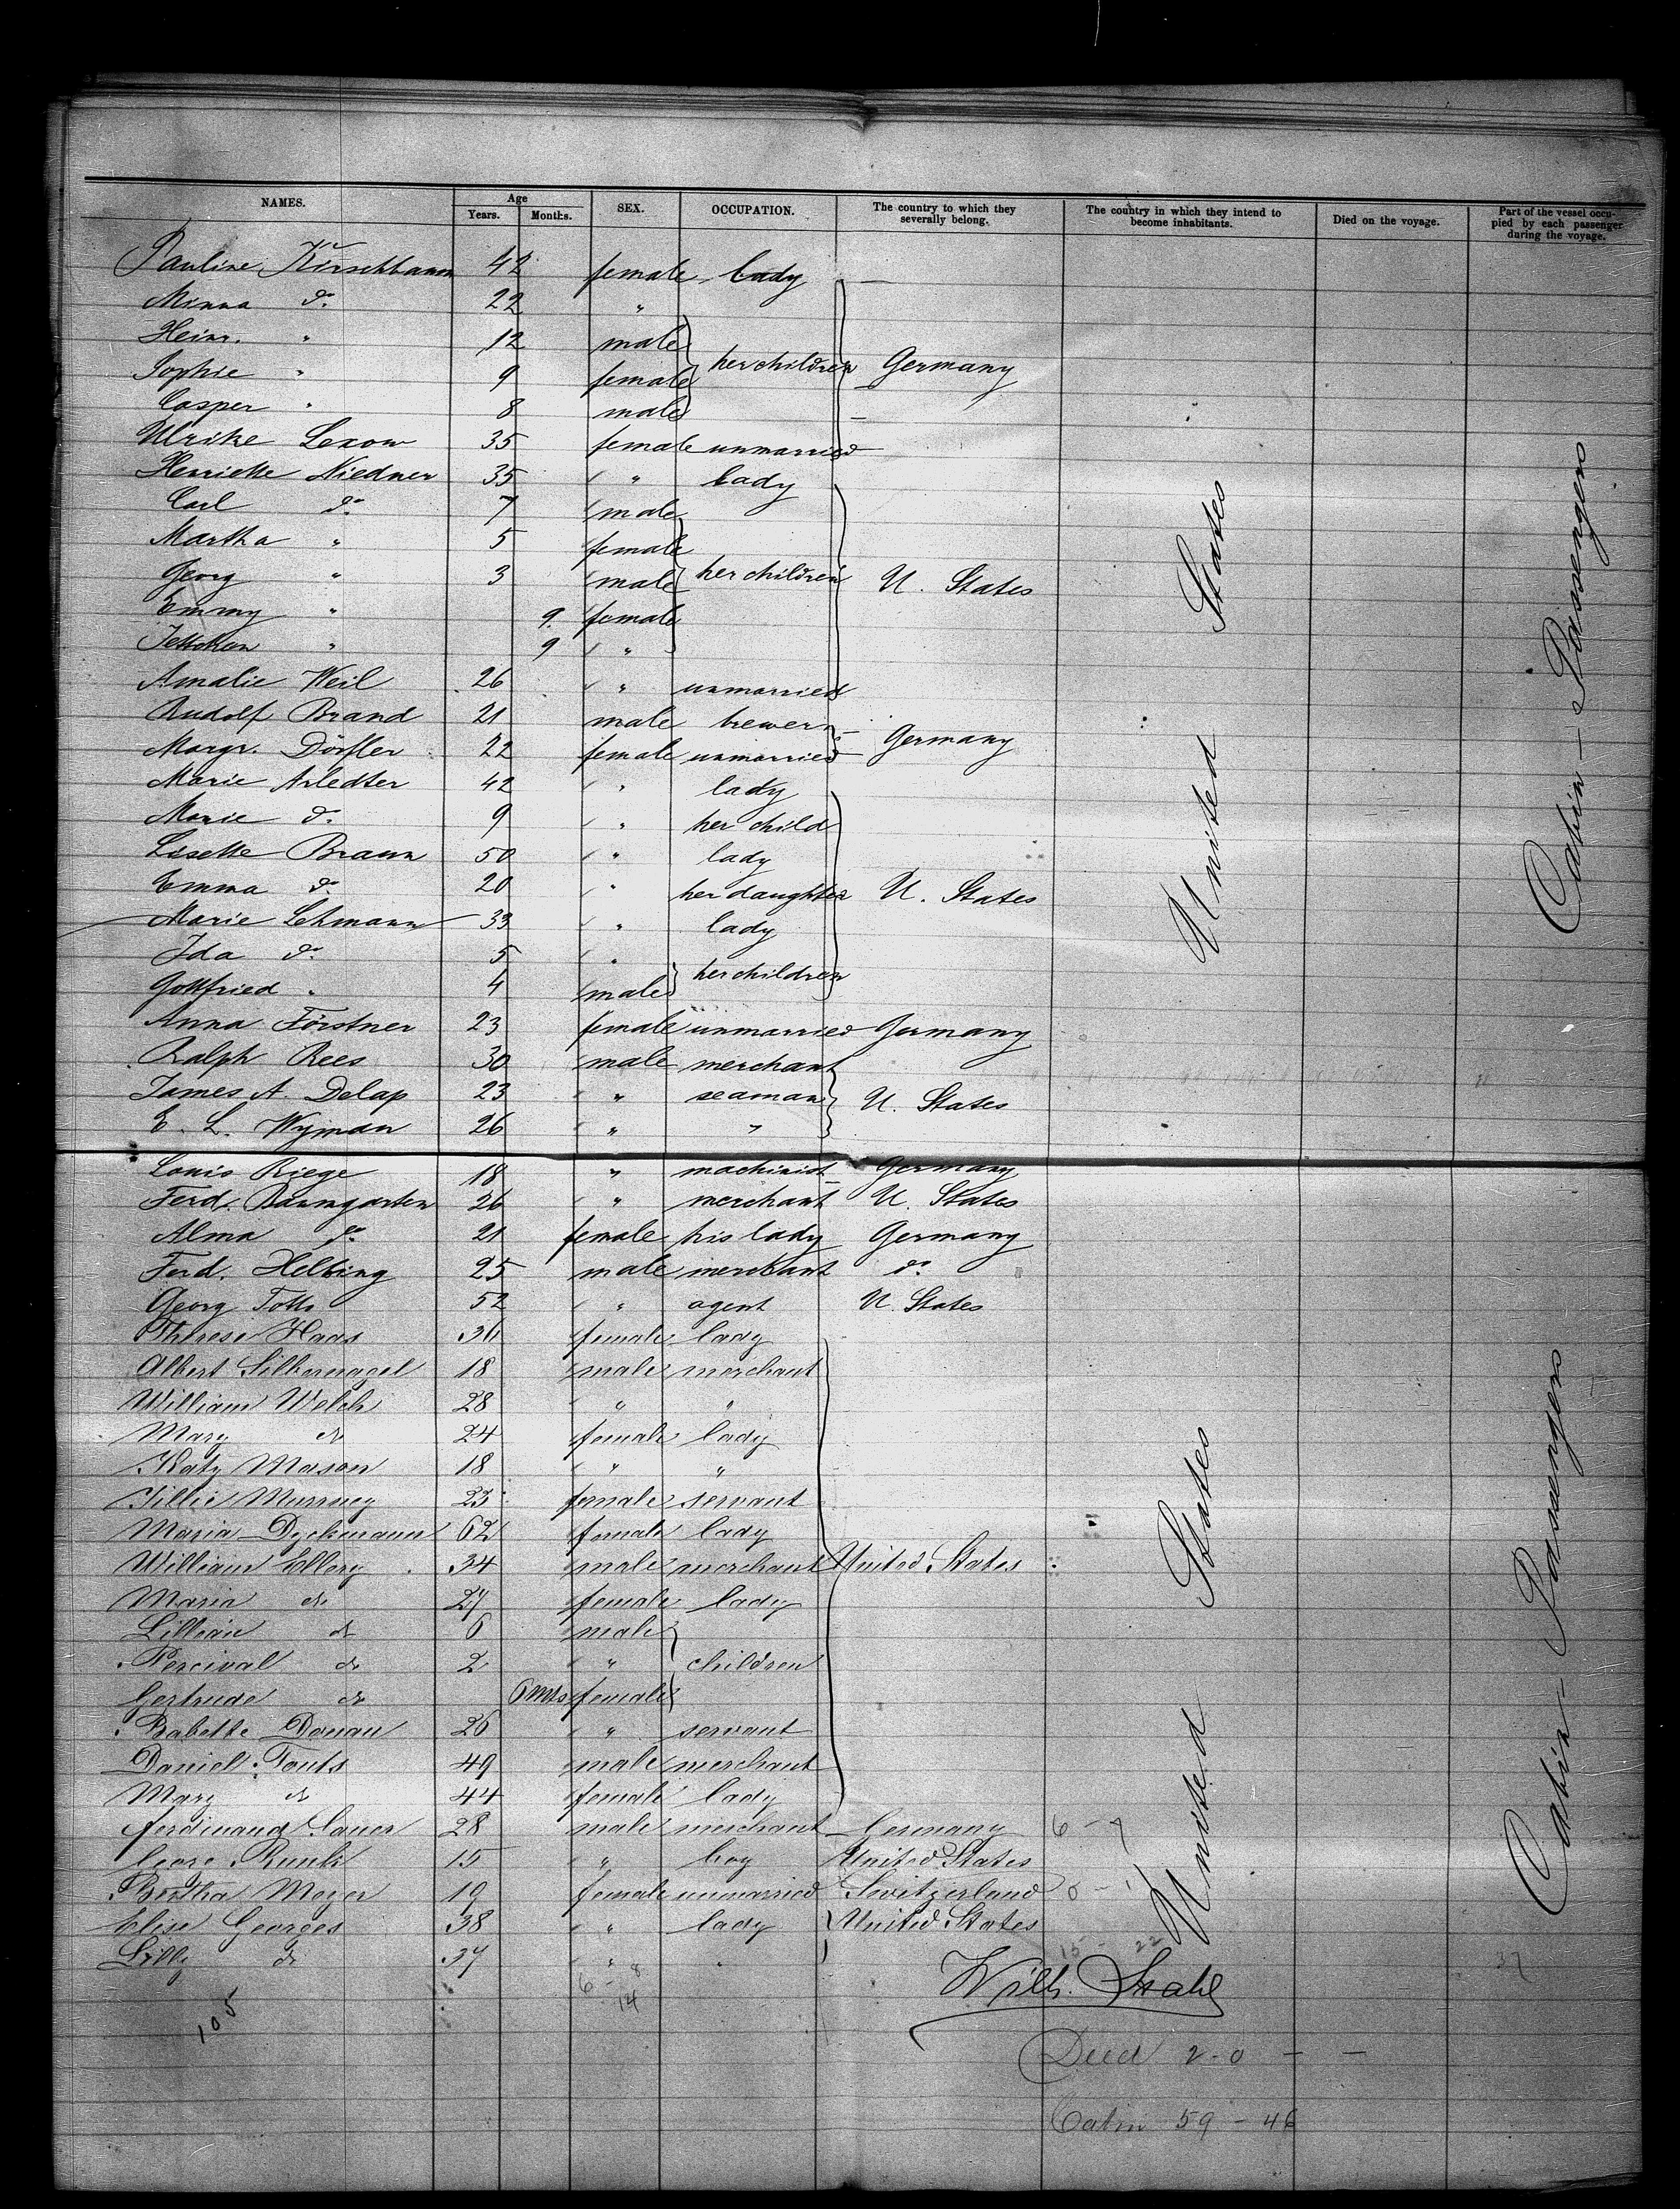 NAMES. Age Years. Months. SEX. OCCUPATION. The country to which they severally belong. The country in which they intend to become inhabitants. Died on the voyage. Part of the vessel occupied by each passenger during the voyage.
Pauline Kirschbaum 42 female lady
Minna do 22 "
Heinr. " 12 male
Sophie " 9 female her children Germany
Casper " 8 male
Ulrike Lexow 35 female unmarried
Henriette Niedner 35 " lady
Carl do 7 male
Martha " 5 female
Georg " 3 male her children U. States
Emmy " 9. female
" 9 "
Amalie Weil 26 " unmarried
Rudolf Brand 21 male brewer
Margr. Dörfler 22 female unmarried Germany
Marie Arledter 42 " lady
Marie do 9 " her child
Lisette Braun 50 " lady
Emma do 20 " her daughter U. States
Marie Lehmann 33 " lady
Ida do 5 "
Gottfried " 4 male her children
Anna Förstner 23 female unmarried Germany
Ralph Rees 30 male merchant
James A. Delap 23 " seaman U. States
E. L. Wyman 26 " "
Louis Riege 18 " machinist Germany
Ferd. Baumgarten 26 " merchant U. States
Alma do 21 female his lady Germany
Ferd. Helbing 25 male merchant do
Georg 52 " agent U. States
Therese Haas 36 female lady
Albert Silbernagel 18 male merchant
William Welch 28 " "
Mary do 24 female lady
Katy Mason 18 " "
Tillie Murrney 23 female servant
Maria Dyckmann 62 female lady
William Ellery 34 male merchant United States
Maria do 27 female lady
Lillian do 6 male
Percival do 2 " children
Gertrude do 6 Mts female
Babette Donau 26 " servant
Daniell Fouts 49 male merchant
Mary do 44 female lady
Ferdinand Sauer 28 male merchant Germany 6 - 7
Georg 15 " boy United States
Bertha Meyer 19 female unmarried Switzerland 0 - 1
Elise Georges 38 " lady United States
Lilly do 37 " "
United States
Cabin - Passengers
United States
Cabin - Passengers
15 - 22
37
6 - 8
14
105
Wilh.
Died 2 - 0 - -
Cabin 59 - 46